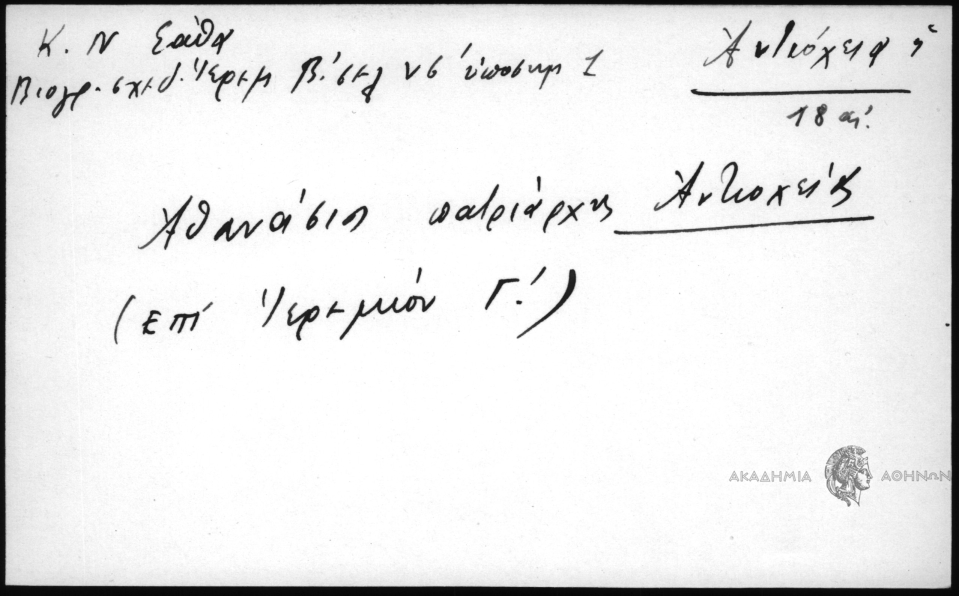 Κ. Ν Σάθα
Βιογρ. σχεδ. Ἱερεμ Β΄. σελ νς ὑποσημ 1
Ἀντιόχεια ἡ
18 αἰ.
Ἀθανάσιος πατριάρχης Ἀντιοχείας
(Ἐπί Ἱερεμίου Γ΄.)
ΑΚΑΔΗΜΙΑ ΑΘΗΝΩΝ